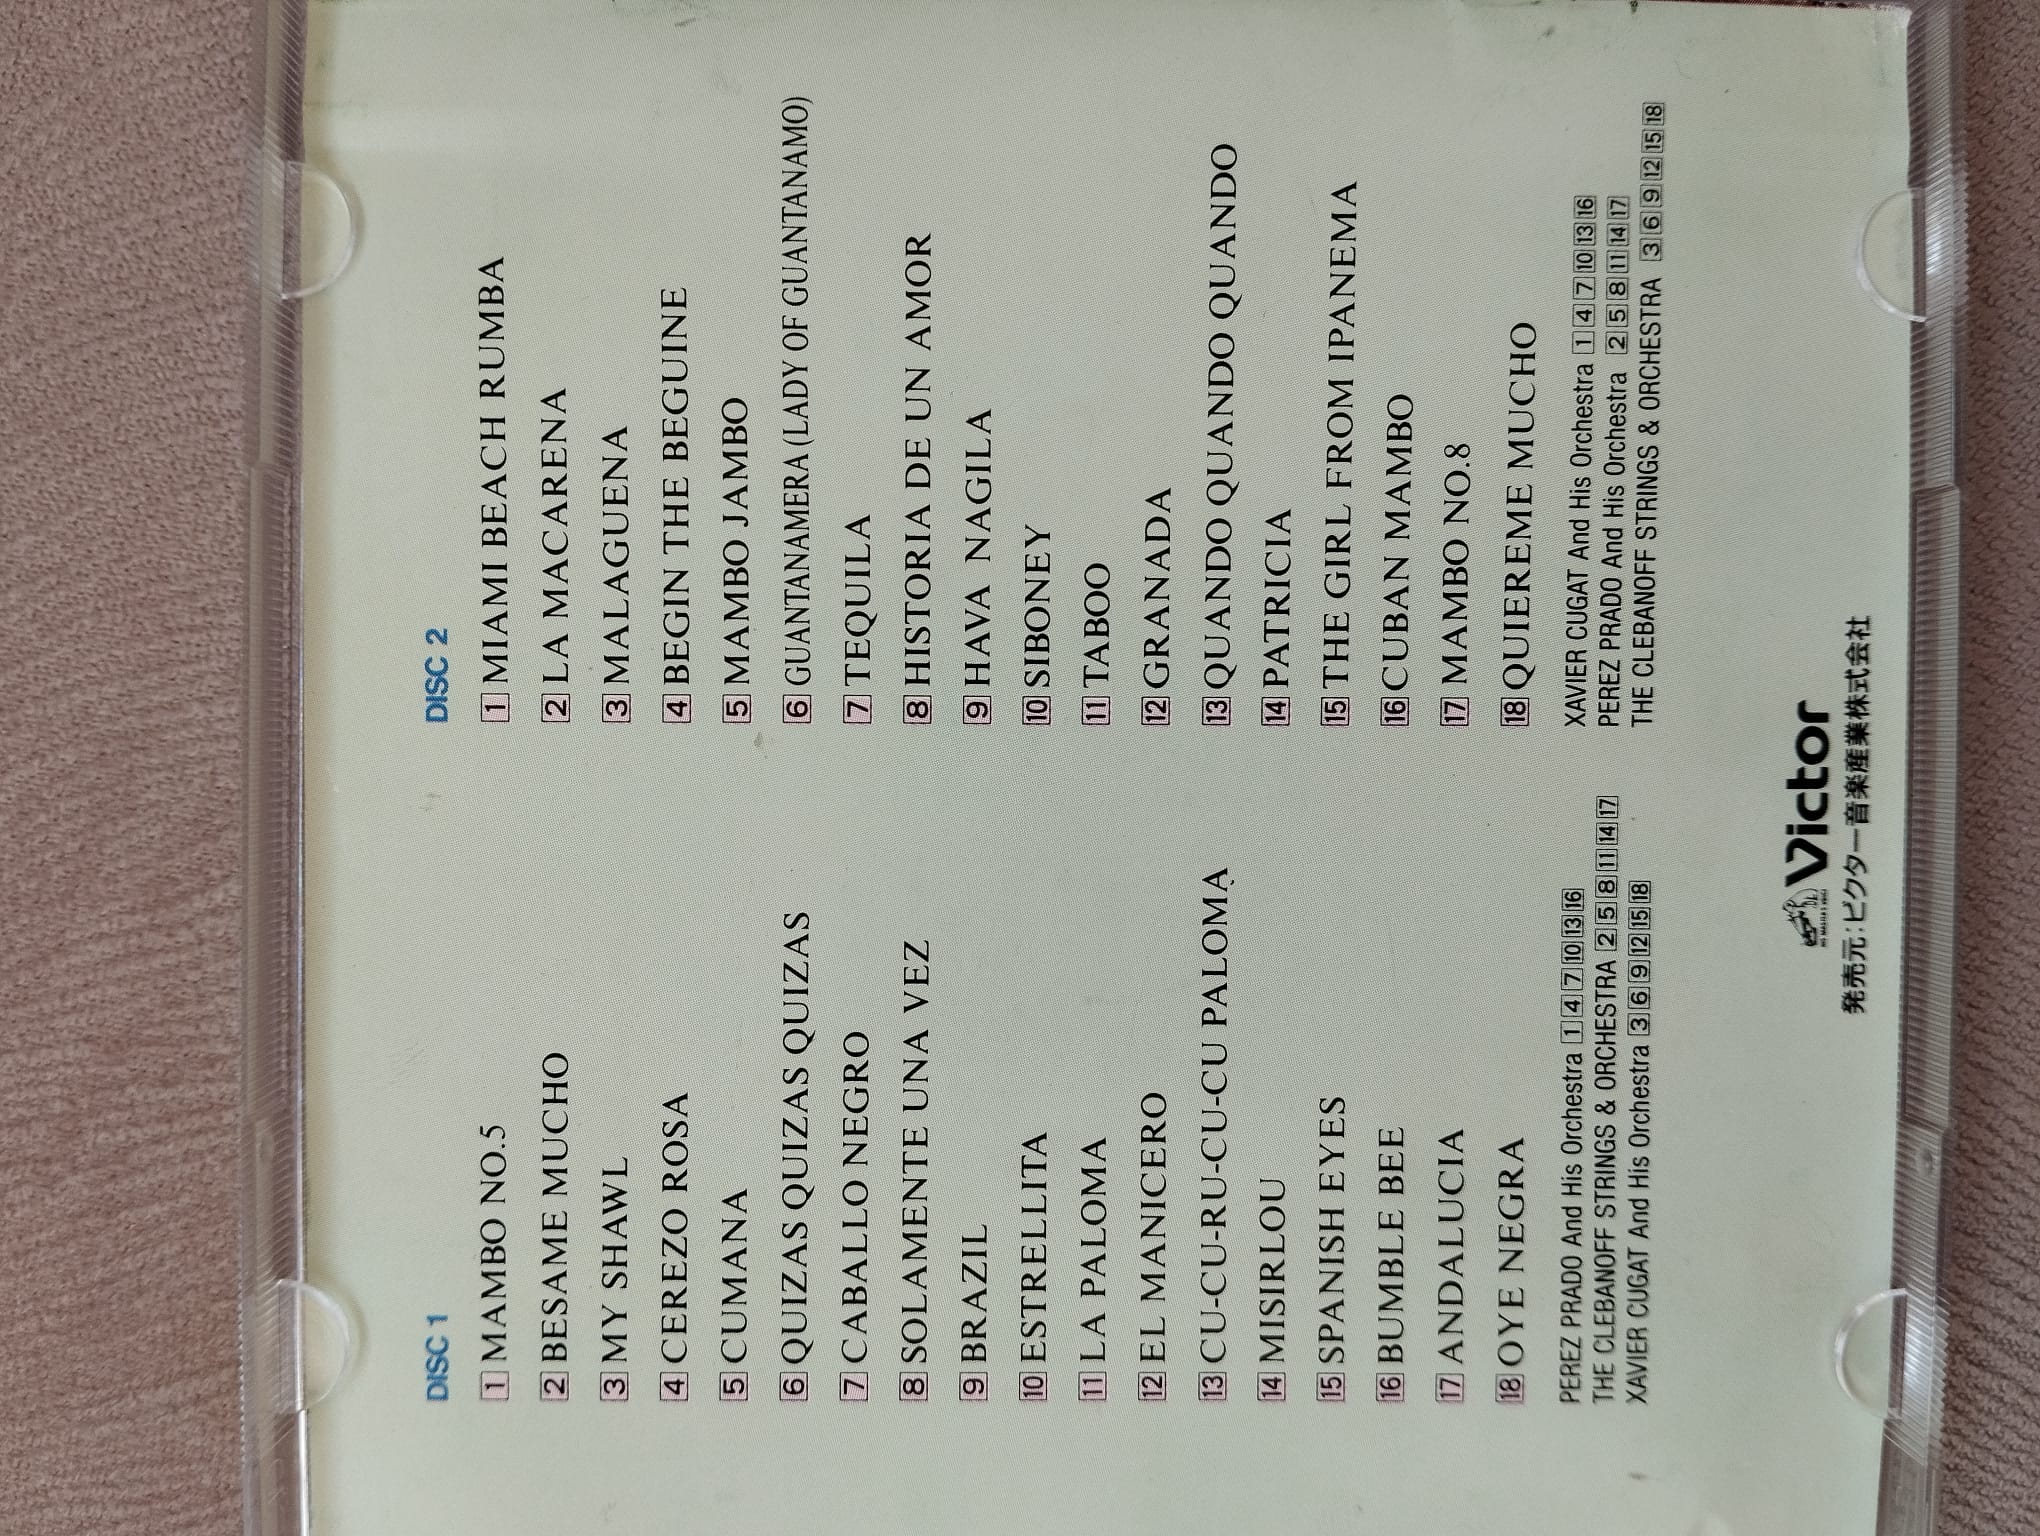 DISC 1
1 MAMBO NO.5
2 BESAME MUCHO
3 MY SHAWL
4 CEREZO ROSA
5 CUMANA
6 QUIZAS QUIZAS QUIZAS
7 CABALLO NEGRO
8 SOLAMENTE UNA VEZ
9 BRAZIL
10 ESTRELLITA
11 LA PALOMA
12 EL MANICERO
13 CU-CU-RU-CU-CU PALOMA
14 MISIRLOU
15 SPANISH EYES
16 BUMBLE BEE
17 ANDALUCIA
18 OYE NEGRA
PEREZ PRADO And His Orchestra 1 4 7 10 13 16
THE CLEBANOFF STRINGS & ORCHESTRA 2 5 8 11 14 17
XAVIER CUGAT And His Orchestra 3 6 9 12 15 18
DISC 2
1 MIAMI BEACH RUMBA
2 LA MACARENA
3 MALAGUENA
4 BEGIN THE BEGUINE
5 MAMBO JAMBO
6 GUANTANAMERA (LADY OF GUANTANAMO)
7 TEQUILA
8 HISTORIA DE UN AMOR
9 HAVA NAGILA
10 SIBONEY
11 TABOO
12 GRANADA
13 QUANDO QUANDO QUANDO
14 PATRICIA
15 THE GIRL FROM IPANEMA
16 CUBAN MAMBO
17 MAMBO NO.8
18 QUIEREME MUCHO
XAVIER CUGAT And His Orchestra 1 4 7 10 13 16
PEREZ PRADO And His Orchestra 2 5 8 11 14 17
THE CLEBANOFF STRINGS & ORCHESTRA 3 6 9 12 15 18
Victor
発売元:ビクター音楽産業株式会社